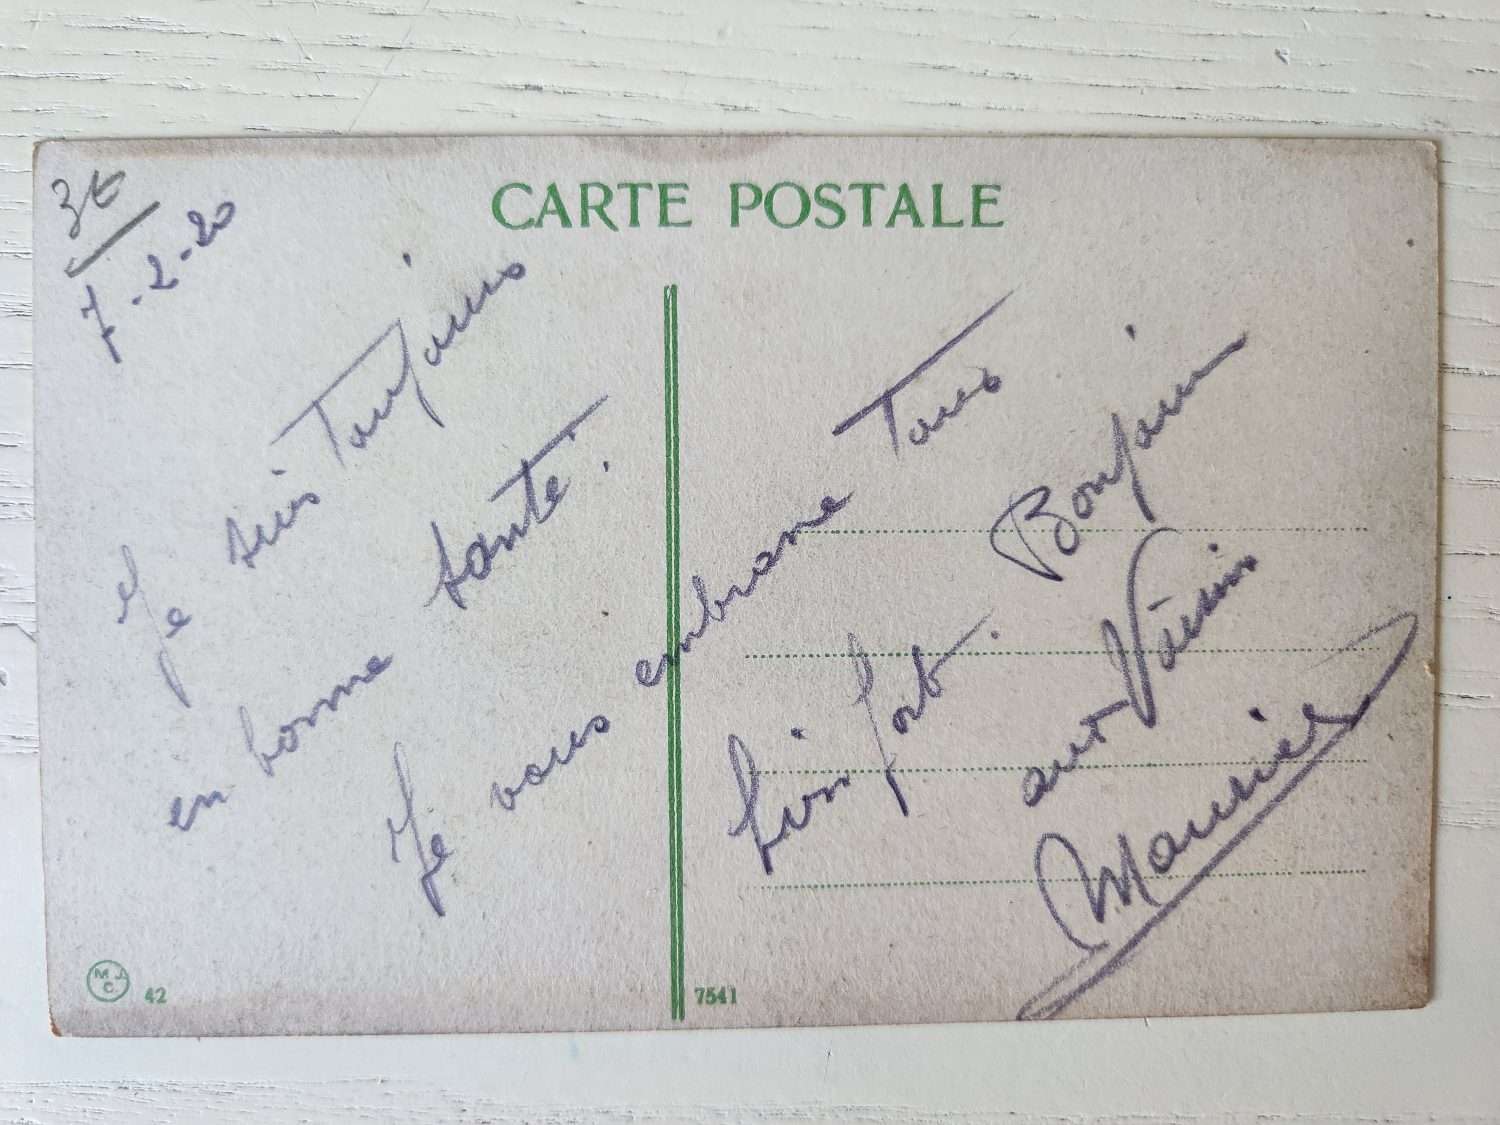 CARTE POSTALE
3€
7-2-20
Je suis Toujours
en bonne santé.
Je vous embrasse Tous
bien fort. Bonjour
aux Voisins
Maurice
M J C
42
7541